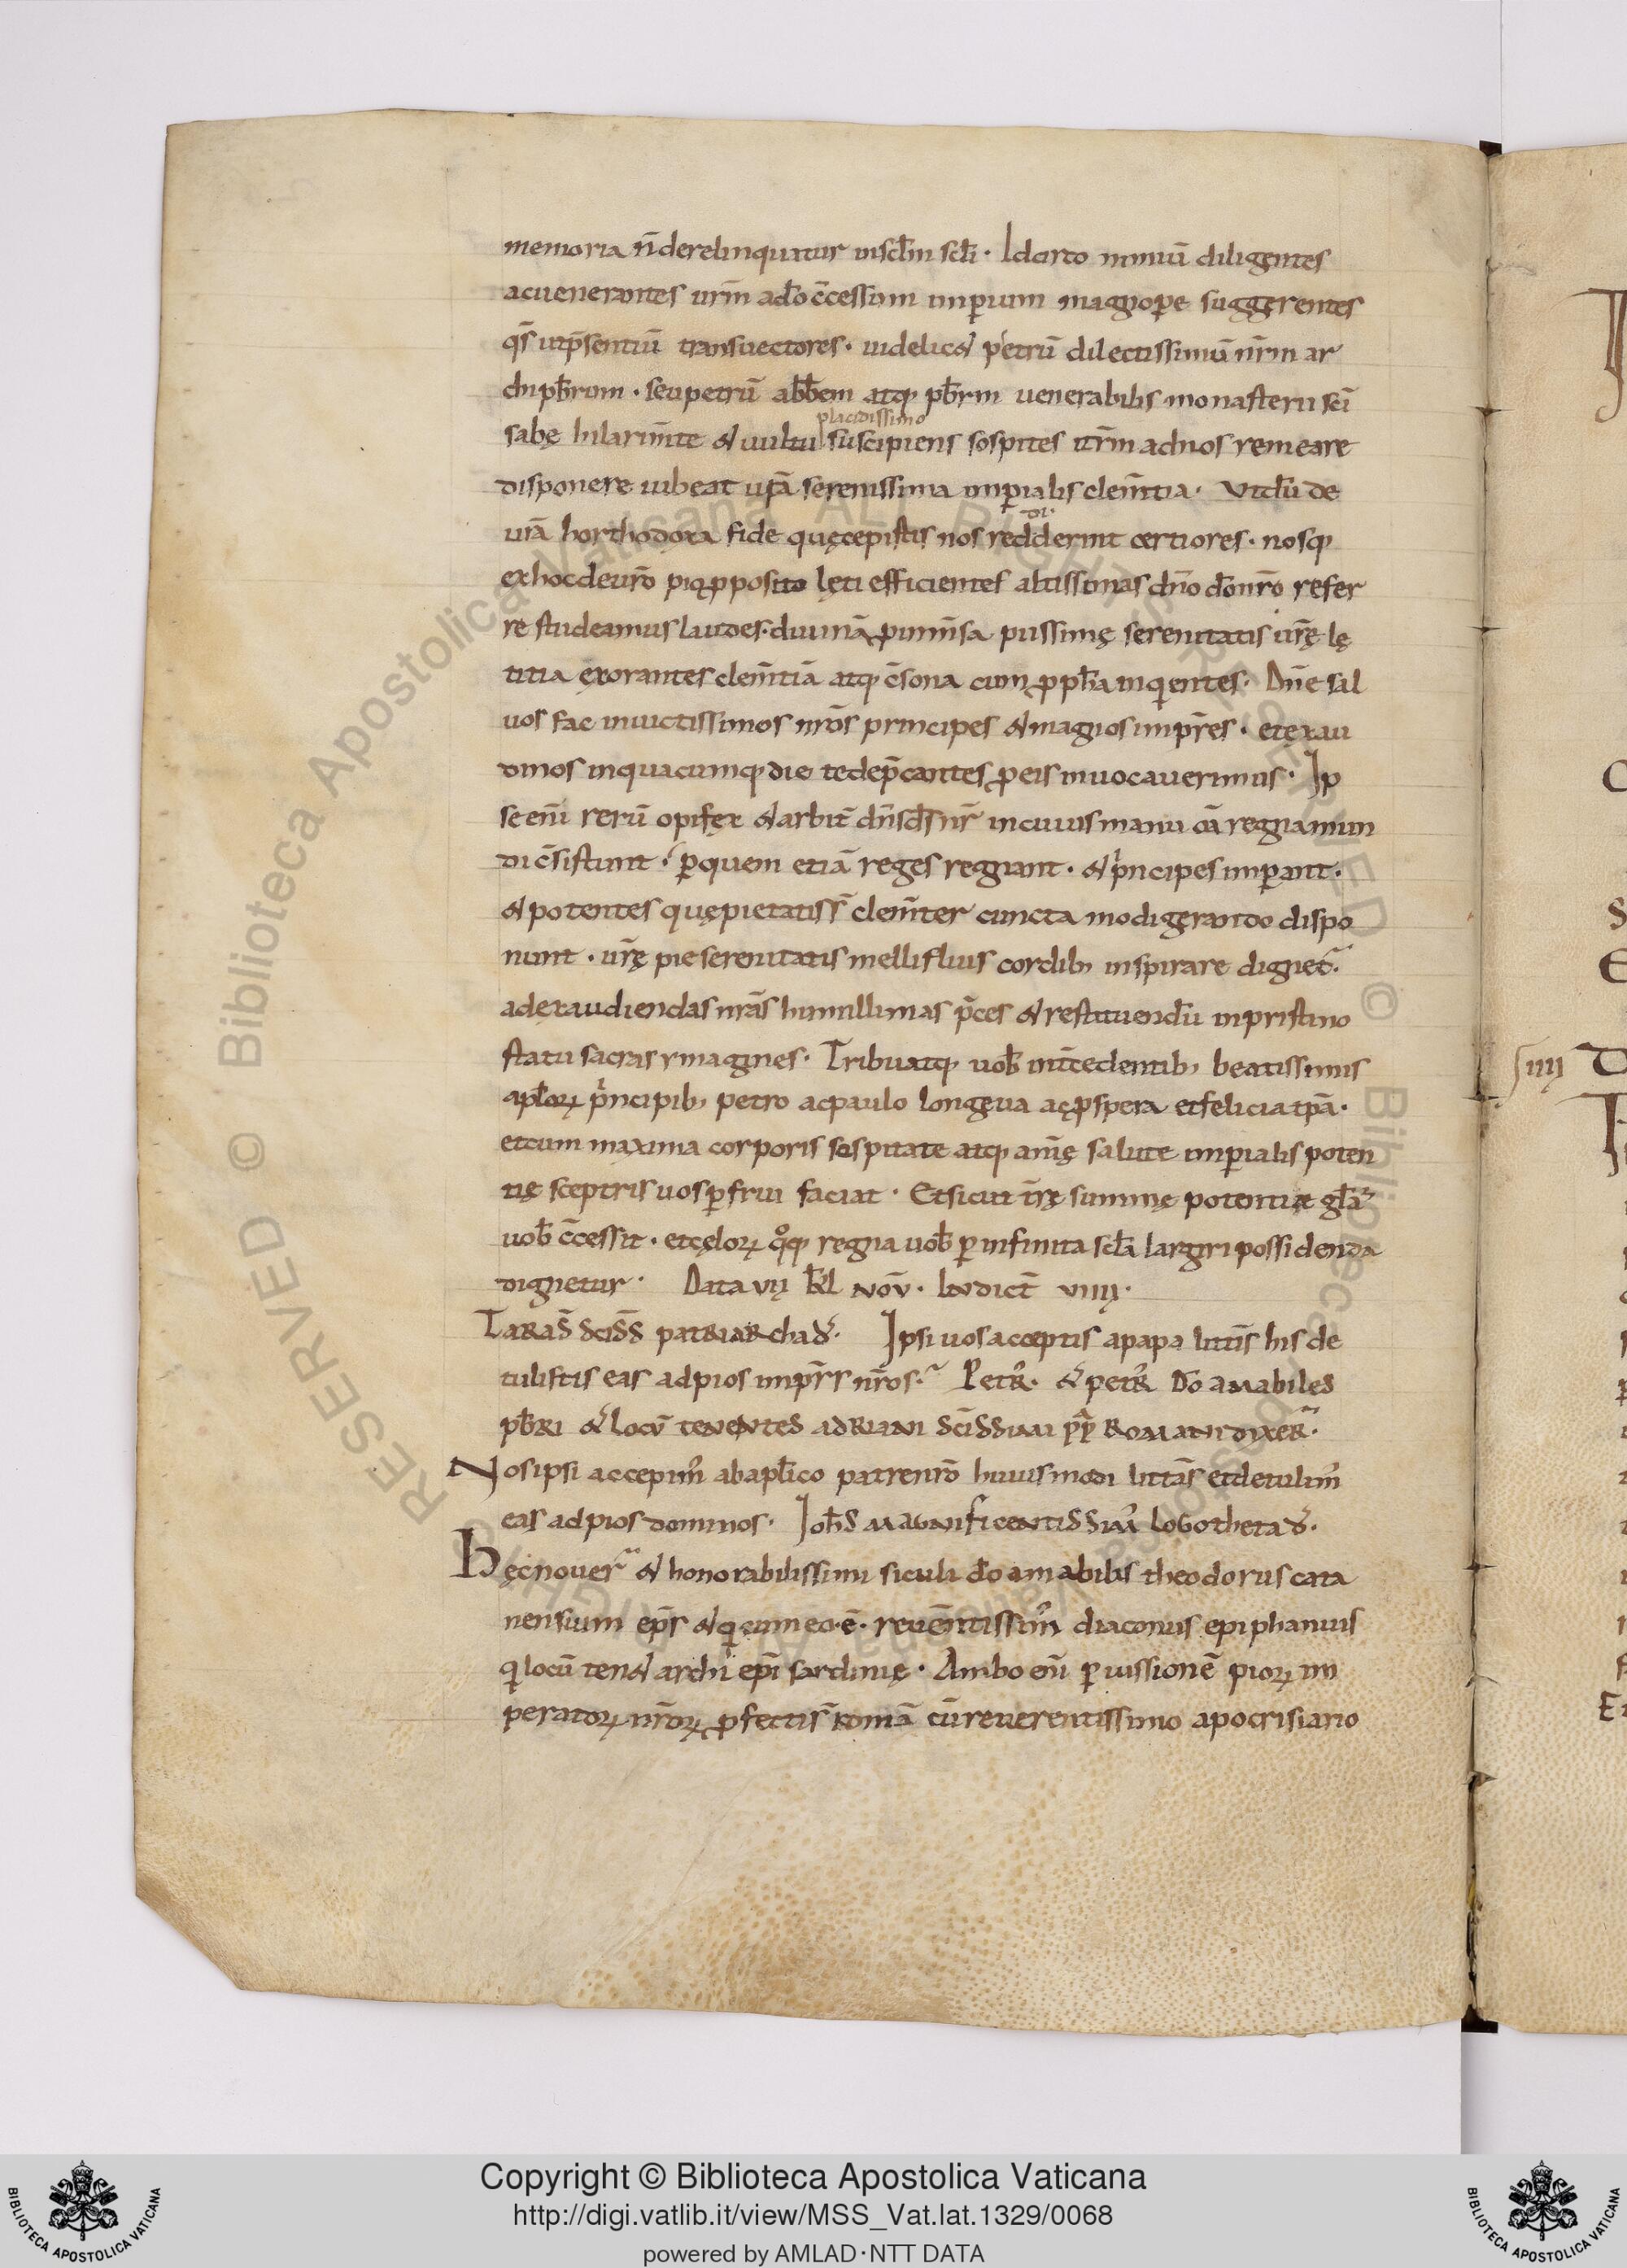 memoria n̄ derelinquatur insc̄lm sc̄li · Idcirco nimiū diligentes
acuenerantes ur̄m ad̄o c̄cessum imꝑium magnoꝑe suggerentes
qs̄ utp̄sentiū transuectores · uidelic& petrū dilectissimū nr̄m ar
chipb̄rum · seupetrū ab̄bem atq; pb̄rm uenerabilis monasterii sc̄i
placidissimo
sabę hilarim̄te & uultu suscipiens sospites it̄rm adnos remeare
disponere iubeat ur̄a serenissima imꝑialis clem̄tia · Vtdū de
di·
ur̄a horthodoxa fide quęcepistis nos redderint certiores · nosq;
exhocdeur̄o piq; ꝓposito lęti efficientes altissimas dn̄o d̄onr̄o refer
re studeamus laudes · diuinā ꝓ inm̄sa piissimę serenitatis ur̄ę lę
titia exorantes clem̄tiā atq; c̄sona cum ꝓph̄a inquientes · Dn̄e sal
uos fac inuictissimos nr̄os principes & magnos impr̄es · etexau
dinos inquacumq; die tedep̄cantes ꝓ eis inuocauerimus · Ip
se enī rerū opifex & arbit̄ dn̄s d̄s nr̄ incuius manu oā regna mun
di c̄sistunt · ꝑquem etiā reges regnant · & principes imꝑant ·
& potentes quępietatiss̄ clem̄ter cuncta modigerando dispo
nunt · ur̄ę pie serenitatis mellifluis cordib; inspirare dignet̄ ·
adexaudiendas nr̄as humillimas p̄ces & restituendū inpristino
statu sacras ymagines · Tribuatq; uob̄ int̄cedentib; beatissimis
apl̄orꝝ principib; petro acpaulo longęua acꝓspera etfelicia tp̄a ·
etcum maxima corporis sospitate atq; anim̄ę salute imꝑialis poten
tię sceptris uos ꝑfrui faciat · Etsicut t̄rę summę potentię gl̄a
uob̄ c̄cessit · etcęlorꝝ qoq; regna uob̄ ꝑ infinita sc̄la largiri possidenda
dignetur · Data VII kl̄ NOV̄ · INdict̄ VIIII ·
TARAS̄ sciss̄ PATRIARCha d̄ · Ipsi uos acceptis apapa litt̄is his de
tulistis eas adpios impr̄rs nr̄os · Petr̄ · & petr̄ D̄o amabiles
pb̄RI & locū teNeNtes ADRIANI sciss̄imi pp̄ ROMANI dixer̄ ·
Nos ipsi accepim̄ abapl̄ico patrenr̄o huiusmodi litt̄as etdetulim̄
eas adpios dominos · Ioh̄s magnificentissim̄ logotheta d̄ ·
Hęcnouer̄ & honorabilissimi siculi d̄o amabilis theodorus cata
nensium ep̄s & qui cum eo · ē · reuēntissim̄ diaconus epiphanius
qui locū ten& archi ep̄i sardinię · Ambo enī ꝑ iussionē piorꝝ im
peratorꝝ nr̄orꝝ ꝓfectis̄ romā cūreuerentissimo apocrisiario
Copyright © Biblioteca Apostolica Vaticana
http://digi.vatlib.it/view/MSS_Vat.lat.1329/0068
powered by AMLAD·NTT DATA